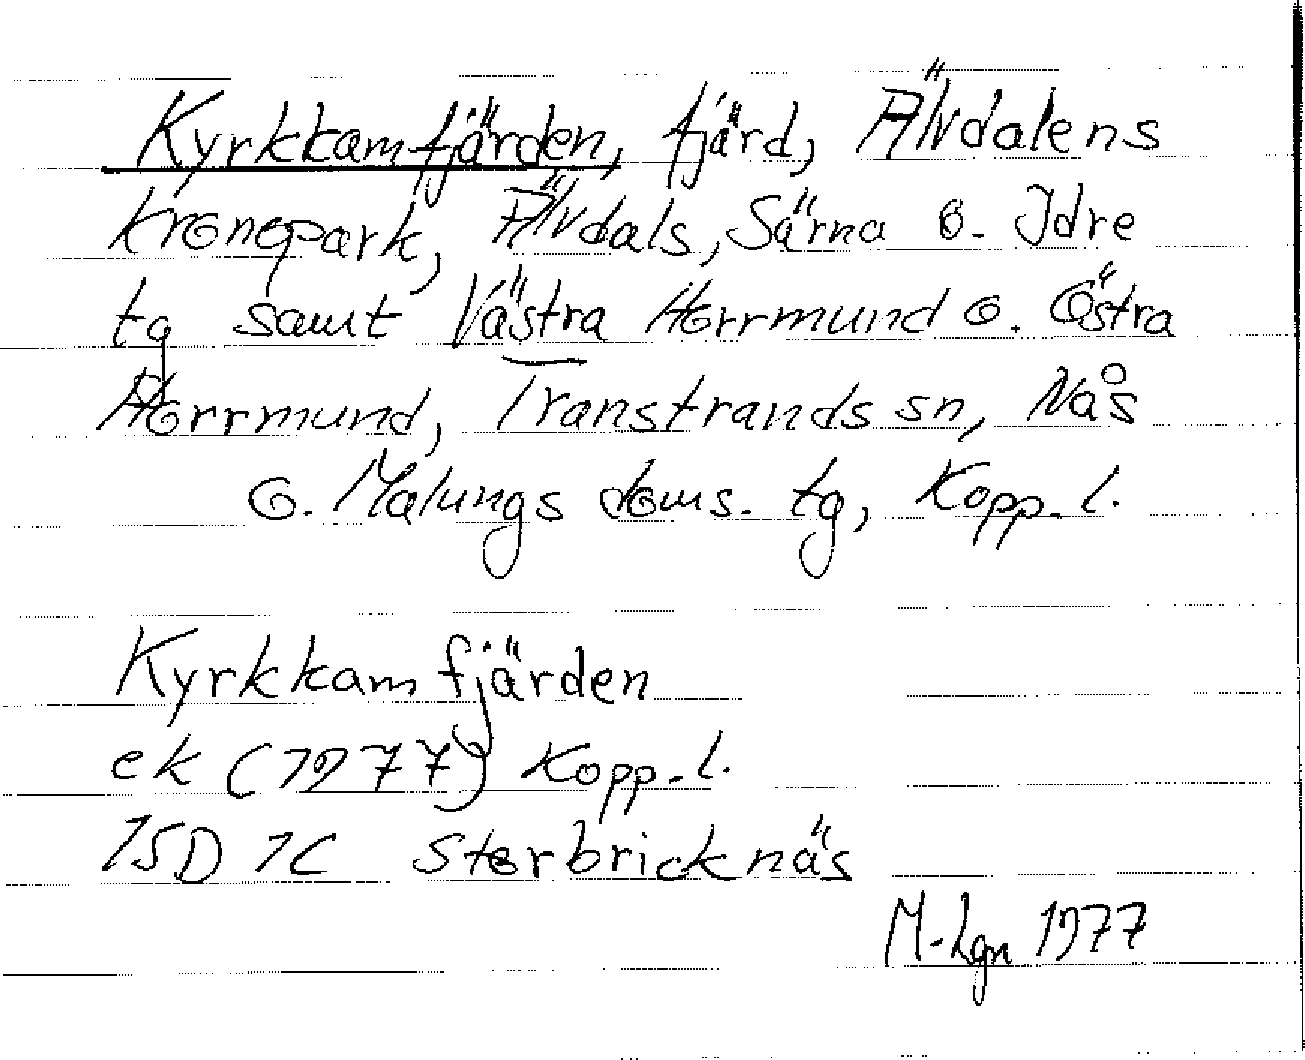 Kyrkkamfjärden, fjärd, Älvdalens
kronopark, Älvdals, Särna o. Idre
tg samt Västra Horrmund o. Östra
Horrmund, Transtrands sn, Nås
o. Malungs doms. tg, Kopp. l.
Kyrkkamfjärden
ek (1977) Kopp. l.
15D 1C Storbricknäs
M-Lgn 1977